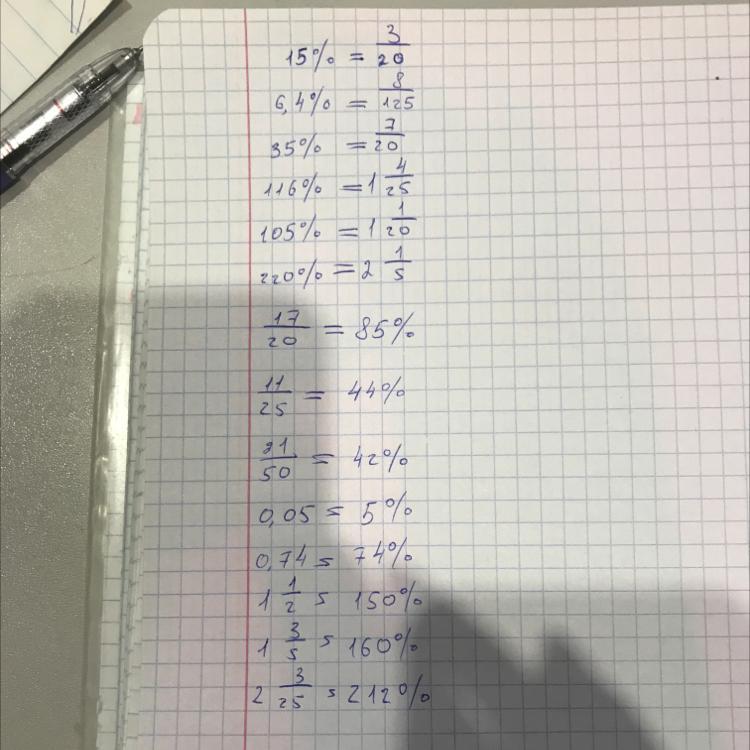 15% = 3/20
6,4% = 8/125
35% = 7/20
116% = 1 4/25
105% = 1 1/20
220% = 2 1/5
17/20 = 85%
11/25 = 44%
21/50 = 42%
0,05 = 5%
0,74 = 74%
1 1/2 = 150%
1 3/5 = 160%
2 3/25 = 212%